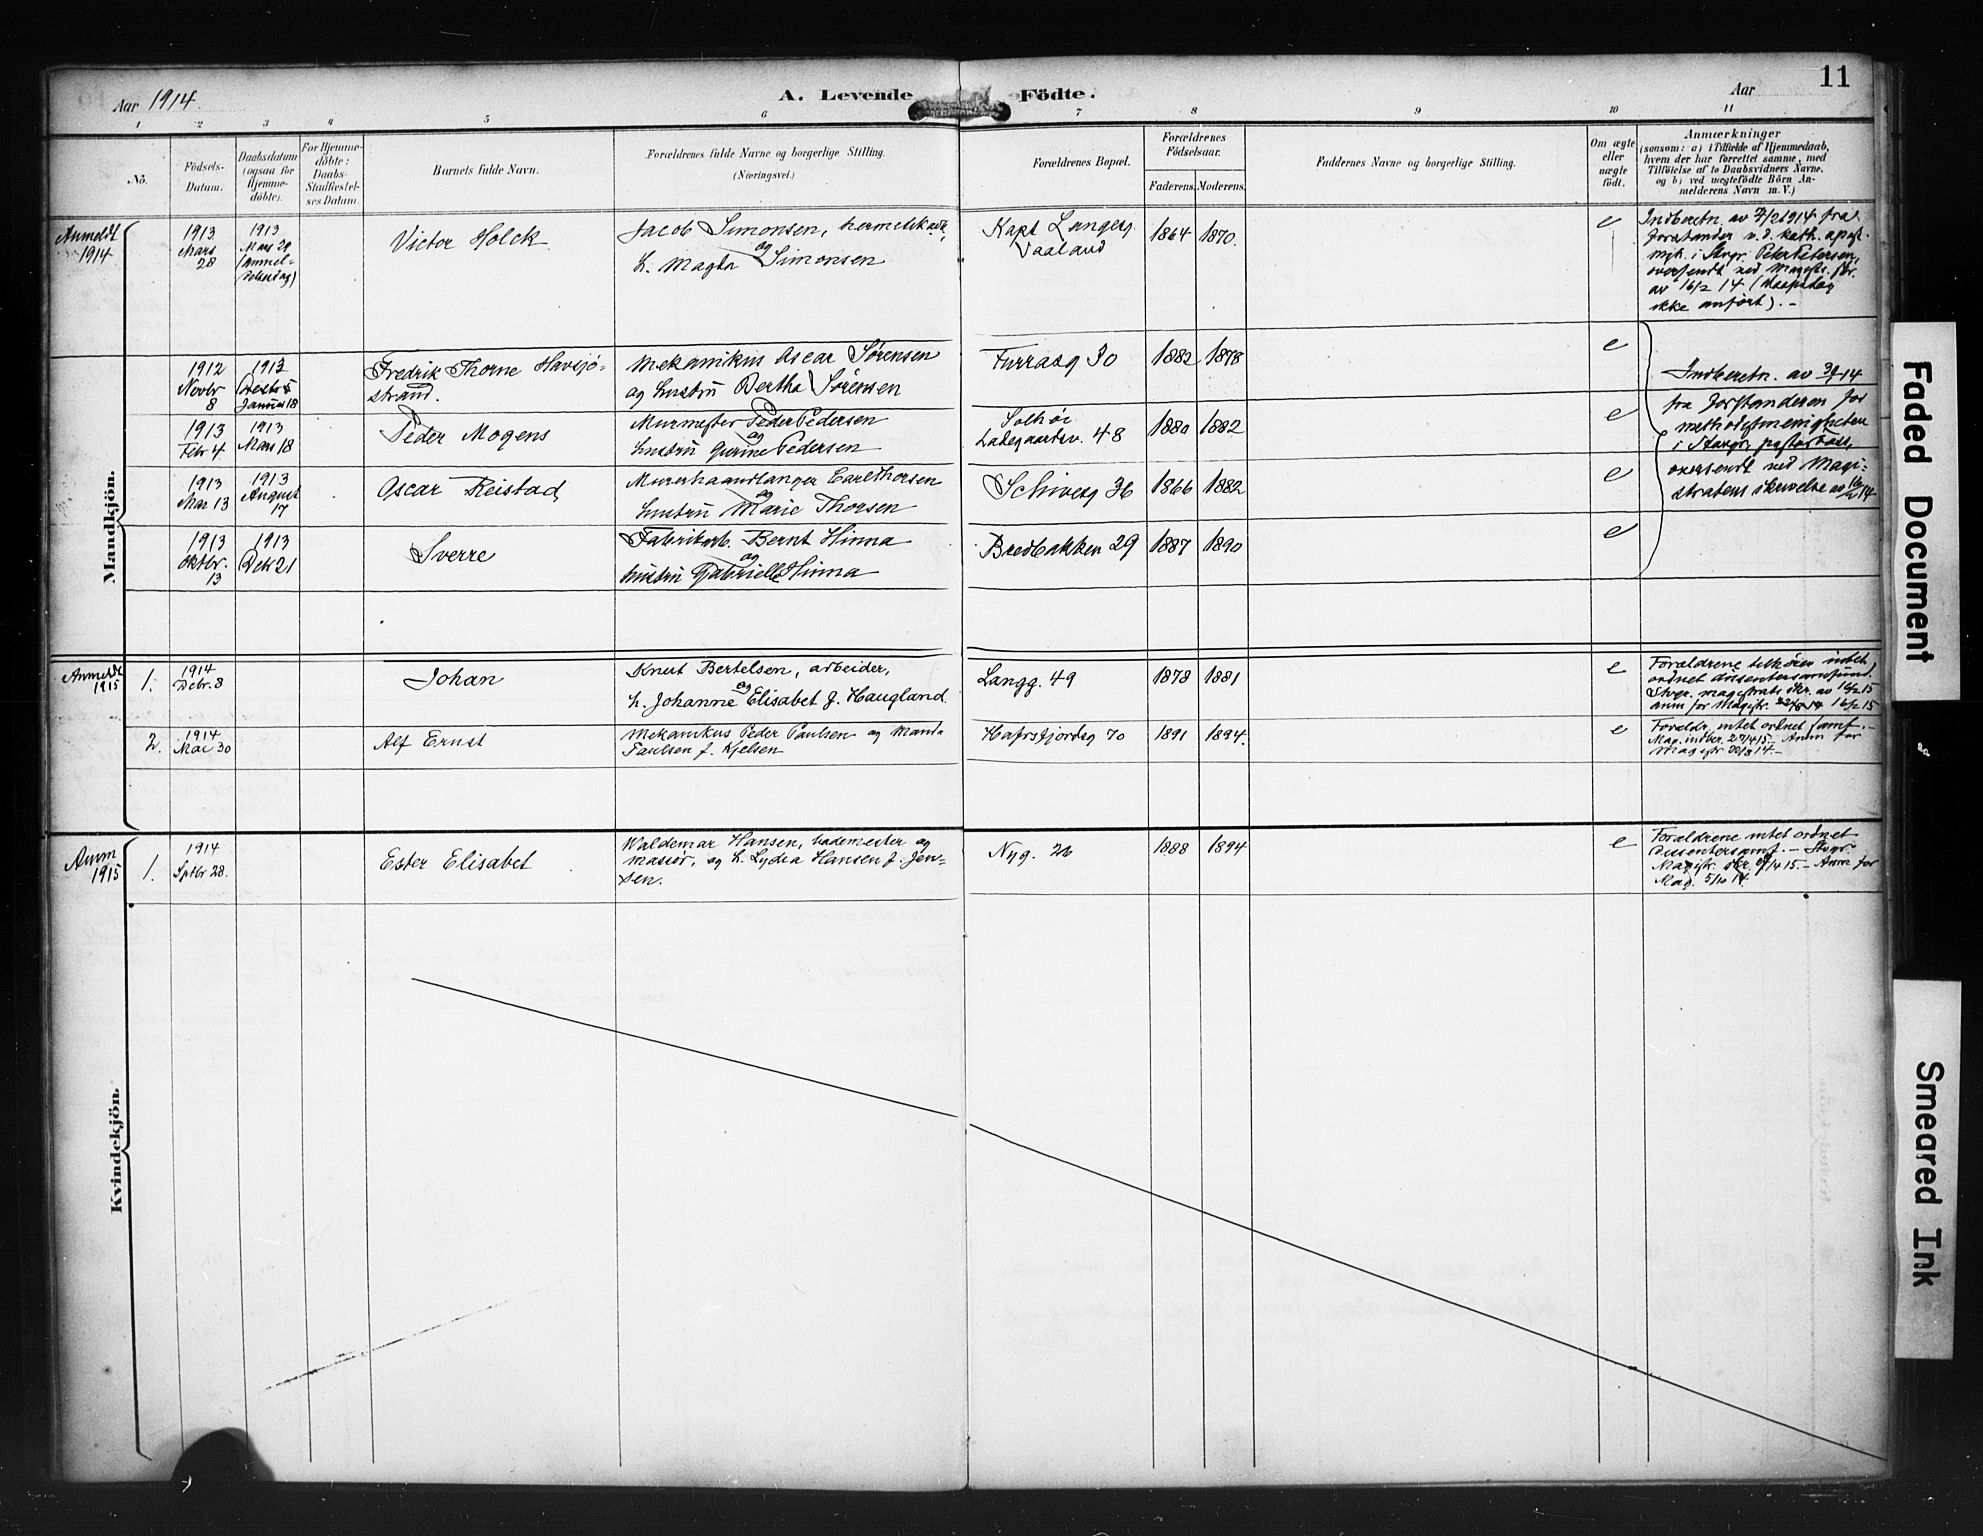 Aar 1914.
A. Levende Födte.
Aar
11
1 2 3 4 5 6 7 8 9 10 11
No.
Födsels-
Datum.
Daabsdatum
(ogsaa for
Hjemme-
döbte).
For Hjemme-
döbte:
Daabs-
Stadfæstel-
ses Datum.
Barnets fulde Navn.
Forældrenes fulde Navne og borgerlige Stilling.
(Næringsvei.)
Forældrenes Bopæl.
Forældrenes
Födselsaar.
Faderens. Moderens.
Faddernes Navne og borgerlige Stilling.
Om ægte
eller
uægte
födt.
Anmærkninger
(saasom: a) i Tilfælde af Hjemmedaab,
hvem der har forrettet samme, med
Tilföielse af to Daabsvidners Navne,
og b) ved uægtefödte Börn An-
melderens Navn m. V.)
Mandkjön.
Anmeldt
1914
1913
Mars
28
1913
Mars 29
(anmel-
delsesdag)
Victor Holck
Jacob Simonsen,
og
h. Magda Simonsen
Kapt Langesg
Vaaland
1864 1870.
e
Indberetn. av 7/2 1914 fra
forstander v. d. kath. apost.
mgh. i Stvgr. Peter Petersen,
oversendt ved Magistr. skr.
av 16/2 14 (daapsdag
ikke anført). -
1912
Novbr
8
1913
Januar 18
Fredrik Thorne Havsjø-
strand.
Mekanikus Oscar Sørensen
og hustru Bertha Sørensen
Furrasg 30
1882 1878
e
Indberetn. av 14
fra forstanderen for
methodistmenigheten
i Stavgr,
oversendt ved Magi-
stratens skrivelse av 16/2 14
1913
Febr 4
1913
Mars 18
Peder Mogens
Murmester Peder Pedersen
og
hustru Gurine Pedersen
Solhøi
Ladegaardsv. 48
1880 1882
e
1913
Mar 13
1913
August
17
Oscar Reistad
Murerhaandlanger Carl Thorsen
og
hustru Marie Thorsen
Schivesg 36
1866 1882
e
1913
Oktbr.
13
1913
Debr 21
Sverre
Fabrikarb. Bernt Hinna
og
hustru Gabrielle Hinna
Bredbakken 29
1887 1890
e
Anmeldt
1915
1.
1914
Debr. 8
Johan
Knut Bertelsen, arbeider,
og
h. Johanne Elisabet f. Haugland.
Langg. 49
1878 1881
e
Forældrene tilhører intet
ordnet dissentersamfund.
Stvgr. magistrats skr. av 16/2 15
anm for Magistr. 16/2 15
2.
1914
Mai 30
Alf Ernst
Mekanikus Peder Paulsen og Manda
Paulsen f. Kjelsen
Hafrsfjordsg 70
1891 1894.
e
Foreldr. intet ordnet samf. -
Mag. indber. 27/4 15 - Anm for
Magistr 20/8 14. -
Kvindekjön.
Anm
1915
1.
1914
Sptbr 28.
Ester Elisabet
Waldemar Hansen, bademester og
massør, og h. Lydia Hansen f. Jen-
sen.
Nyg. 26
1888 1894
e
Forældrene intet ordnet
dissentersamf. - Stvgr.
Magistr. skr. 15. - Anm for
Mag. 5/10 14.
Faded Document
Smeared Ink